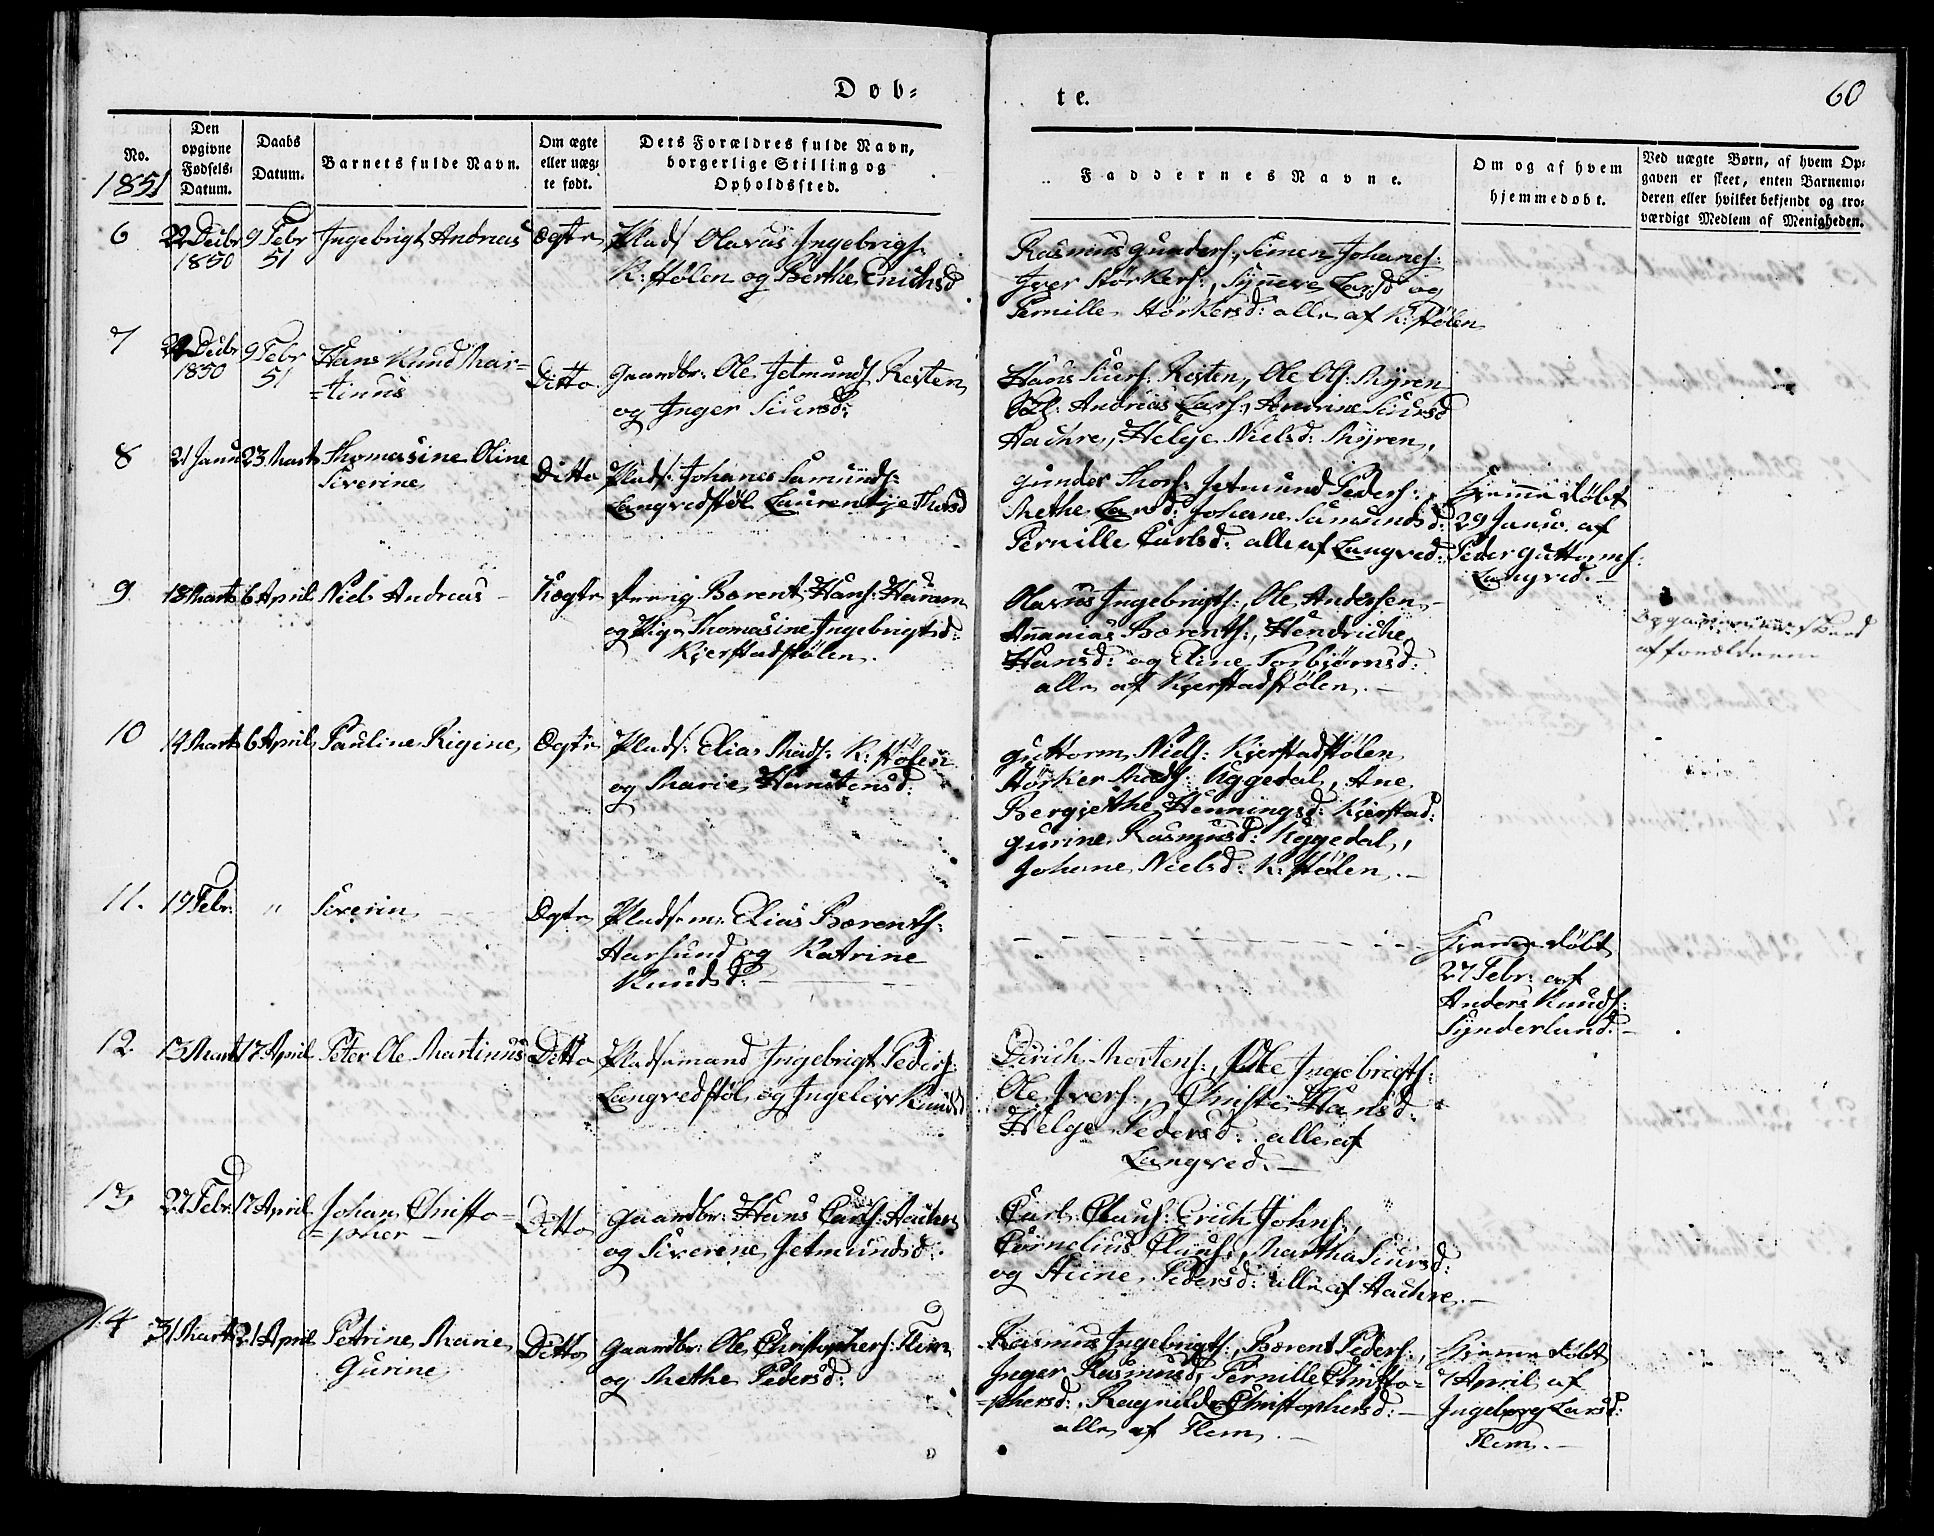 Døb-
te.
60
No.
1851
Den
opgivne
Fødsels-
Datum.
Daabs
Datum.
Barnets fulde Navn.
Om ægte
eller uæg-
te født.
Dets Forældres fulde Navn,
borgerlige Stilling og
Opholdssted.
Faddernes Navne.
Om og af hvem
hjemmedøbt.
Ved uægte Børn, af hvem Op-
gaven er skeet, enten Barnemo-
deren eller hvilket bekjendt og tro-
værdigt Medlem af Menigheden.
6
22 Decbr
1850
9 Febr
51
Ingebrigt Andreas
Ægte
Plads: Olavus Ingebrigts:
K: stølen og Berthe Erichsd
Rasmus Gunders:, Simen Johanes:
Iver Størkers:, Synneve Larsd og
Pernille Størkersd: alle af K: stølen
7
Decbr
1850
9 Febr
51
Hans Knud Mar-
=tinus
Ditto
Gaardbr: Ole Jetmunds: Resten
og Inger Siursd:
Hans Siurs: Resten, Ole Ols: Myren
Andreas Lars:, Andrine Siursd
Hachre, Helge Nielsd: Myren,
8
21 Janu
23 Marts
Thomasine Oline
Siverine
Ditto
Plads: Johanes Samunds:
Langvedstøl Laurentje Thorsd
Gunder Thors: Jetmund Peders:
Methe Larsd: Johane Samundsd:
Pernille Carlsd: alle af Langved:
Hjemmedøbt
29 Janu. af
Peder Guttorms:
Langved.
9
18 Marts
6 April
Niels Andreas
Uægte
Dreng Bærent Hans: Haram
og Pige Thomasine Ingebrigtsd:
Kjerstadstølen.
Olavus Ingebrigts:, Ole Andersen
Annanias Bærents:, Hendriche
Hansd: og Eline Torbjørnsd:
alle af Kjerstadstølen.
af forældrene
10
14 Marts
6 April
Pauline Rigine
Ægte
Plads: Elias Mads: K: stølen
og Marie Hanstensd:
Guttorm Niels: Kjerstadstølen
Størker Mads: Uggedal, Ane
Bergjethe Henningsd: Kjerstad:
Gurine Rasmusd: Uggedal,
Johane Nielsd: K: stølen.
11.
19 Febr.
"
Severin
Ægte
Pladsm: Elias Bærents:
Aarsund og Katrine
Knudsd:
Hjemmedøbt
27 Febr: af
Anders Knuds:
Synderlund.
12.
13 Marts
17 April
Peter Ole Martinus
Ditto
Pladsmand Ingebrigt Peders:
Langvedstøl og Ingeleiv Knudsd
Dirich Mortens:, Ole Ingebrigts:
Ole Ivers:, Christie Hansd:
Helge Pedersd: alle af
Langved.
13
27 Febr.
17 April
Johan Christo-
=pher
Ditto
Gaardbr: Hans Carls: Hachre
og Siverene Jetmundsd:
Carl Claus: Erich Johns:,
Cornelius Claus:, Martha Siursd:
og Stine Pedersd: alle af Hachre.
14
31 Marts
21 April
Petrine Marie
Gurine
Ditto
Gaardbr: Ole Christophers: Flem
og Methe Pedersd:
Rasmus Ingebrigts:, Bærent Peders:,
Inger Rasmusd, Pernille Christo-
=phersd:, Ragnilde Christophersd:
alle af Flem.
Hjemmedøbt
7 April af
Ingeborg Larsd:
Flem.